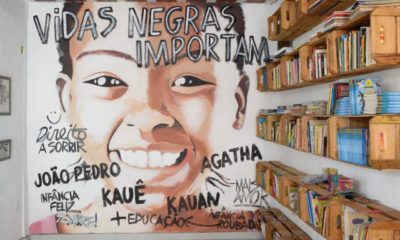 VIDAS NEGRAS
IMPORTAM
Direito
A SORRIR
JOÃO PEDRO
AGATHA
INFÂNCIA
FELIZ
KAUÊ
KAUAN
MAIS
AMOR
+ EDUCAÇÃO
INFÂNCIA
ROUBADA